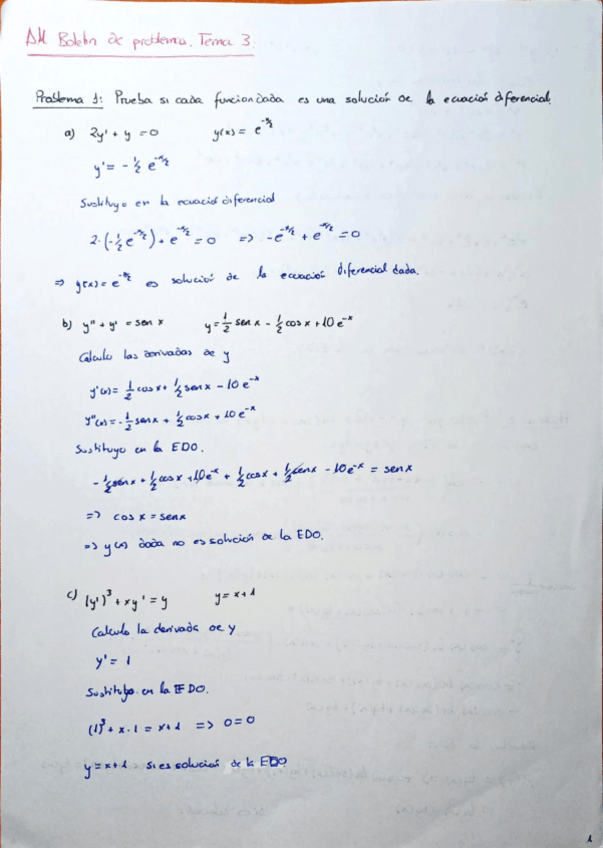 AM Boletín de problemas. Tema 3.
Problema 1: Prueba si cada funcion dada es una solución de la ecuación diferencial.
a) 2y' + y = 0 y(x) = e^{-x/2}
y' = - 1/2 e^{-x/2}
Sustituyo en la ecuación diferencial
2·(-1/2 e^{-x/2}) + e^{-x/2} = 0 => -e^{-x/2} + e^{-x/2} = 0
=> y(x) = e^{-x/2} es solución de la ecuación diferencial dada.
b) y'' + y' = sen x y = 1/2 sen x - 1/2 cos x + 10 e^{-x}
Calculo las derivadas de y
y'(x) = 1/2 cos x + 1/2 sen x - 10 e^{-x}
y''(x) = - 1/2 sen x + 1/2 cos x + 10 e^{-x}
Sustituyo en la EDO.
- 1/2 sen x + 1/2 cos x + 10 e^{-x} + 1/2 cos x + 1/2 sen x - 10 e^{-x} = sen x
=> cos x = sen x
=> y(x) dada no es solución de la EDO.
c) (y')^3 + x y' = y y = x + 1
Calculo la derivada de y
y' = 1
Sustituyo en la EDO.
(1)^3 + x · 1 = x + 1 => 0 = 0
y = x + 1 si es solución de la EDO
1